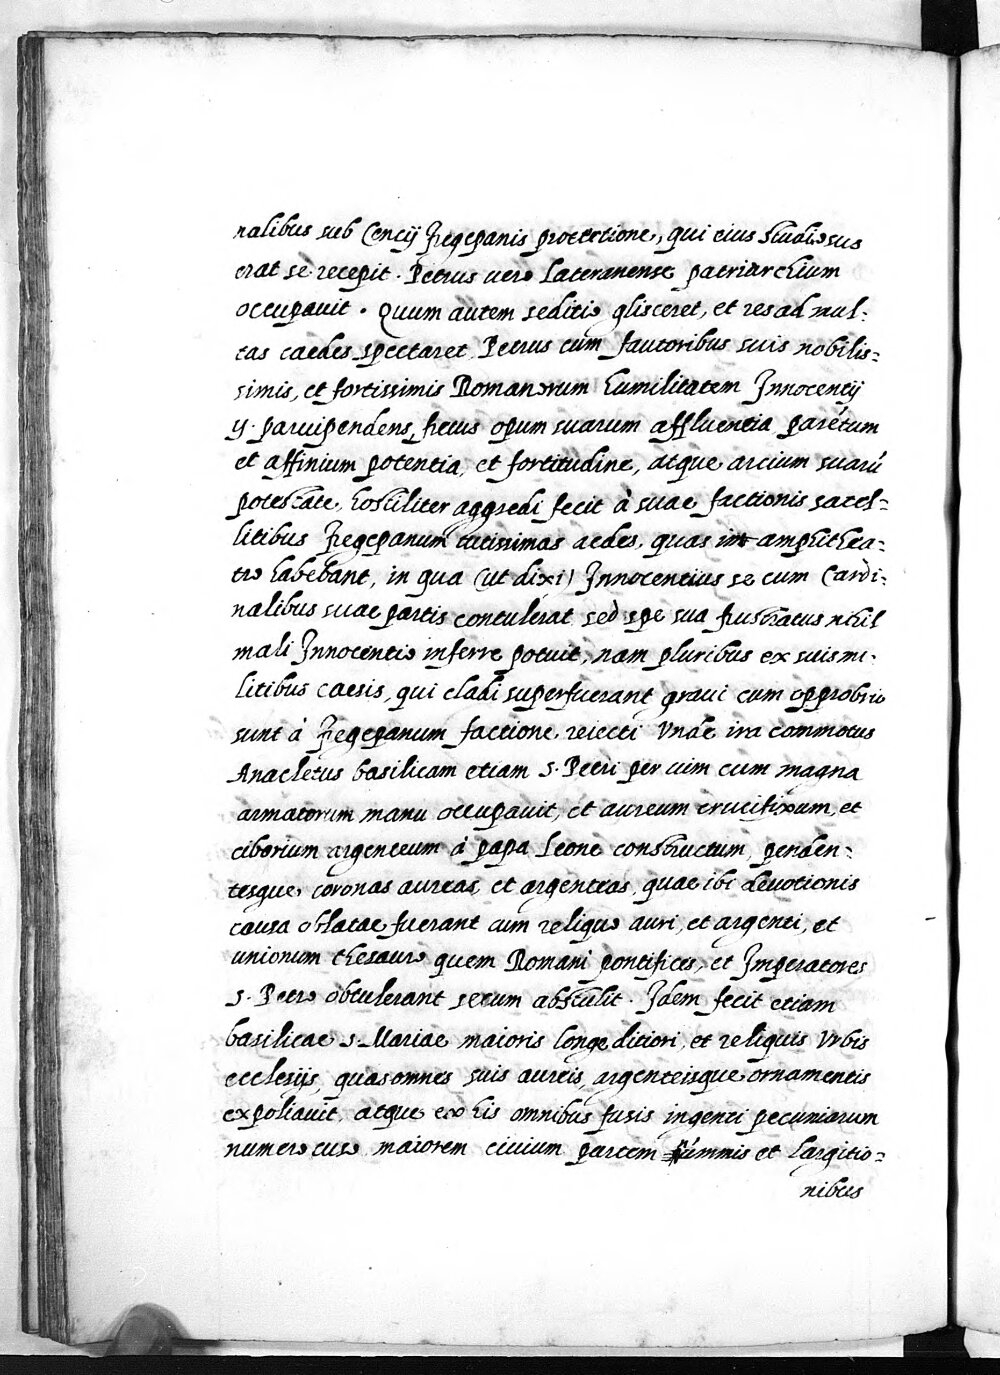 nalibus sub Cencij Fregepanis protectione, qui eius studiosus
erat se recepit. Petrus uero Lateranense patriarchium
occupauit. Quum autem seditio glisceret, et res ad mul-
tas caedes spectaret, Petrus cum fautoribus suis nobilis=
simis, et fortissimis Romanorum humilitatem Innocentij
ij. paruipendens, fretus opum suarum affluentia parétum
et affinium potentia, et fortitudine, atque arcium suarū
potestate, hostiliter aggredi fecit à suae factionis satel=
litibus Fregepanum tutissimas aedes, quas in amphithea=
tro habebant, in qua (ut dixi) Innocentius se cum Cardi=
nalibus suae partis contulerat sed spe sua frustratus nihil
mali Innocentio inferre potuit, nam pluribus ex suis mi-
litibus caesis, qui cladi superfuerant graui cum opprobrio
sunt à Fregepanum factione reiecti Vnde ira commotus
Anacletus basilicam etiam s. Petri per uim cum magna
armatorum manu occupauit, et aureum crucifixum, et
ciborium argenteum à papa Leone constructum, penden=
tesque coronas aureas, et argenteas, quae ibi deuotionis
causa oblatae fuerant cum reliquo auri, et argenti, et
unionum thesauro quem Romani pontifices, et Imperatores
s. Petro obtulerant secum abstulit. Idem fecit etiam
basilicae s. Mariae maioris longe ditiori, et reliquis Vrbis
ecclesijs, quas omnes suis aureis, argenteisque ornamentis
expoliauit, atque ex his omnibus fusis ingenti pecuniarum
numero cuso maiorem ciuium partem summis et largitio=
nibus